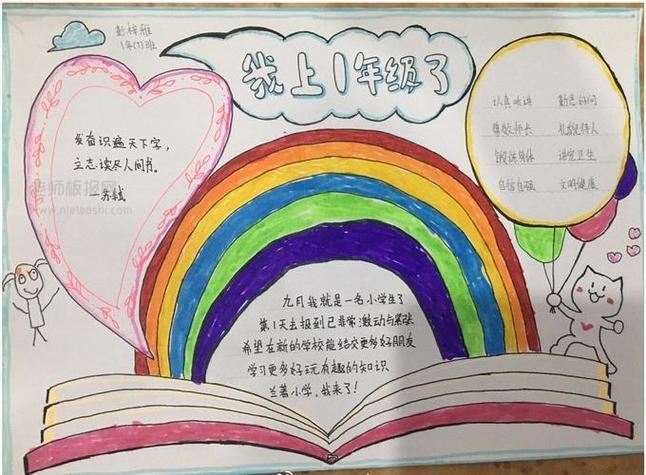 彭梓雁
1年(7)班
我上1年级了
发奋识遍天下字，
立志读尽人间书。
—苏轼
老师板报网
www.nielaoshi.com
认真听讲 勤思好问
尊敬师长 礼貌待人
锻炼身体 讲究卫生
自信自强 文明健康
九月我就是一名小学生了
第1天去报到已非常激动与紧张
希望在新的学校能结交更多好朋友
学习更多好玩有趣的知识
兰著小学，我来了！